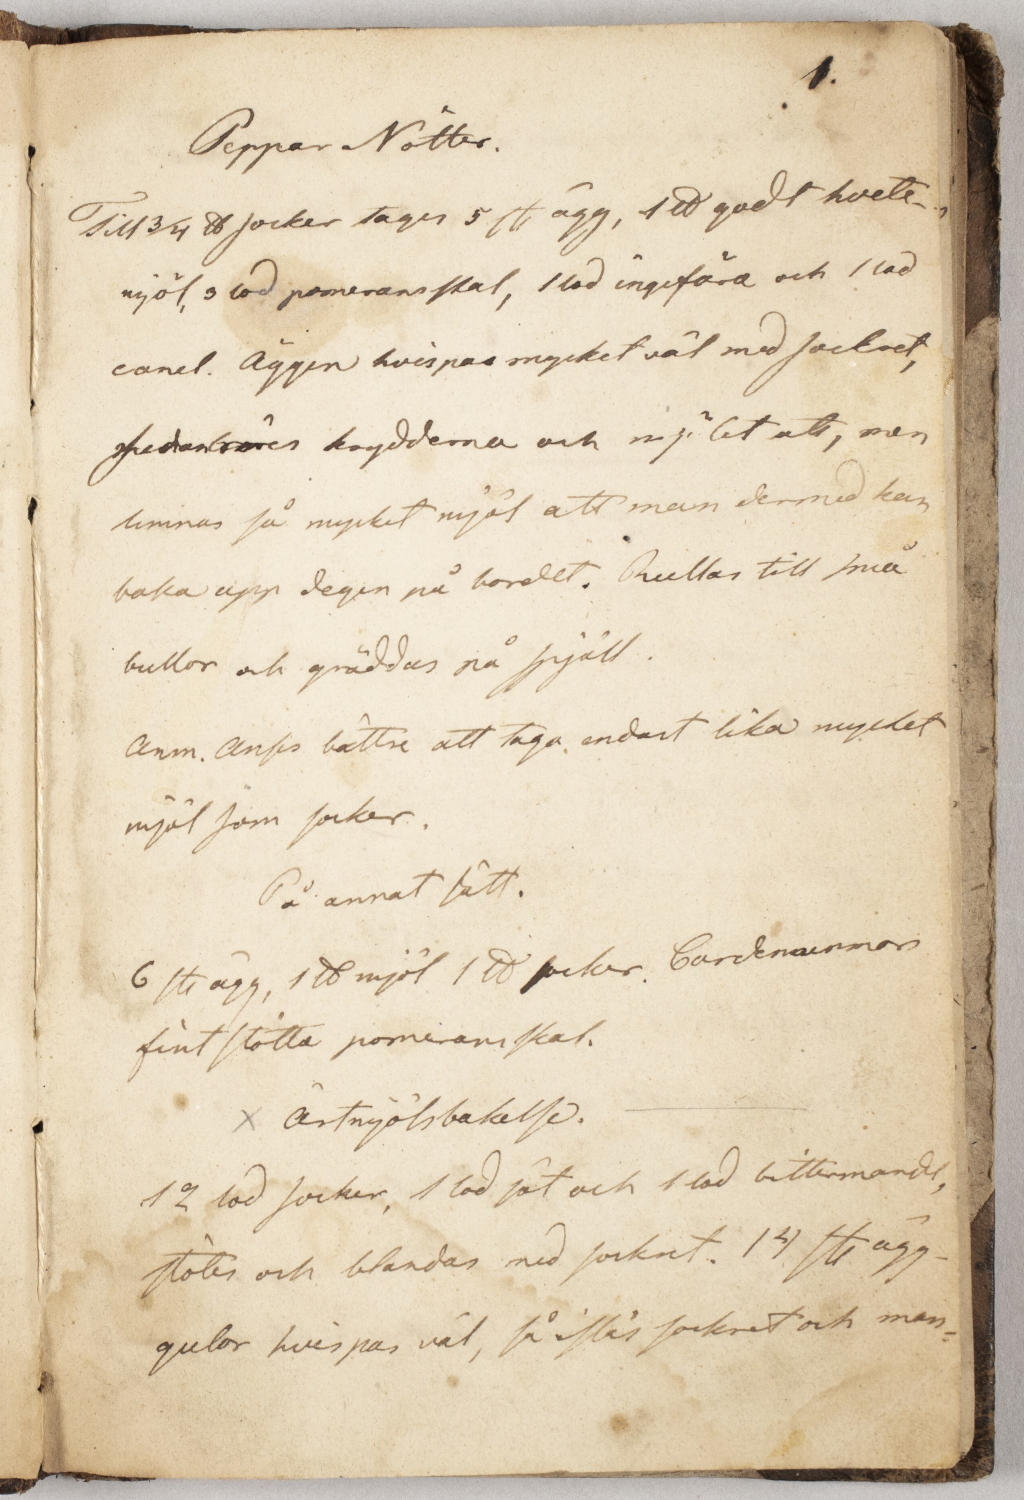 1.
Peppar Nötter.
Till 3/4 ℔ socker tages 5 st ägg, 1 ℔ godt hvete-
mjöl, 3 lod pomeransskal, 1 lod ingefära och 1 lod
canel. Äggen hvispas mycket väl med sockret,
sedan röres kryddorna och mjölet uti, men
lemnas så mycket mjöl att man dermed kan
baka upp degen på bordet. Rullas till små
bullor och gräddas på spjäll.
Anm. Anses bättre att taga endast lika mycket
mjöl som socker.
På annat sätt.
6 st ägg, 1 ℔ mjöl 1 ℔ socker. Cardemummor
fint stötta pomeransskal.
x Ärtmjölsbakelse.
12 lod socker, 1 lod söt och 1 lod bittermandel,
stötes och blandas med sockret. 14 st ägg-
gulor hvispas väl, så islås sockret och man=